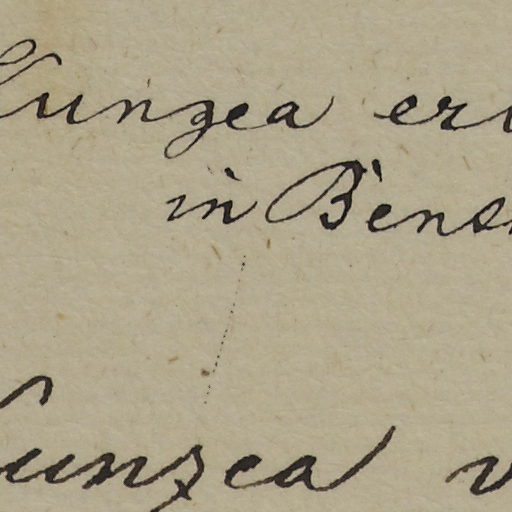 Kunzea eri
in Benth
Kunzea v